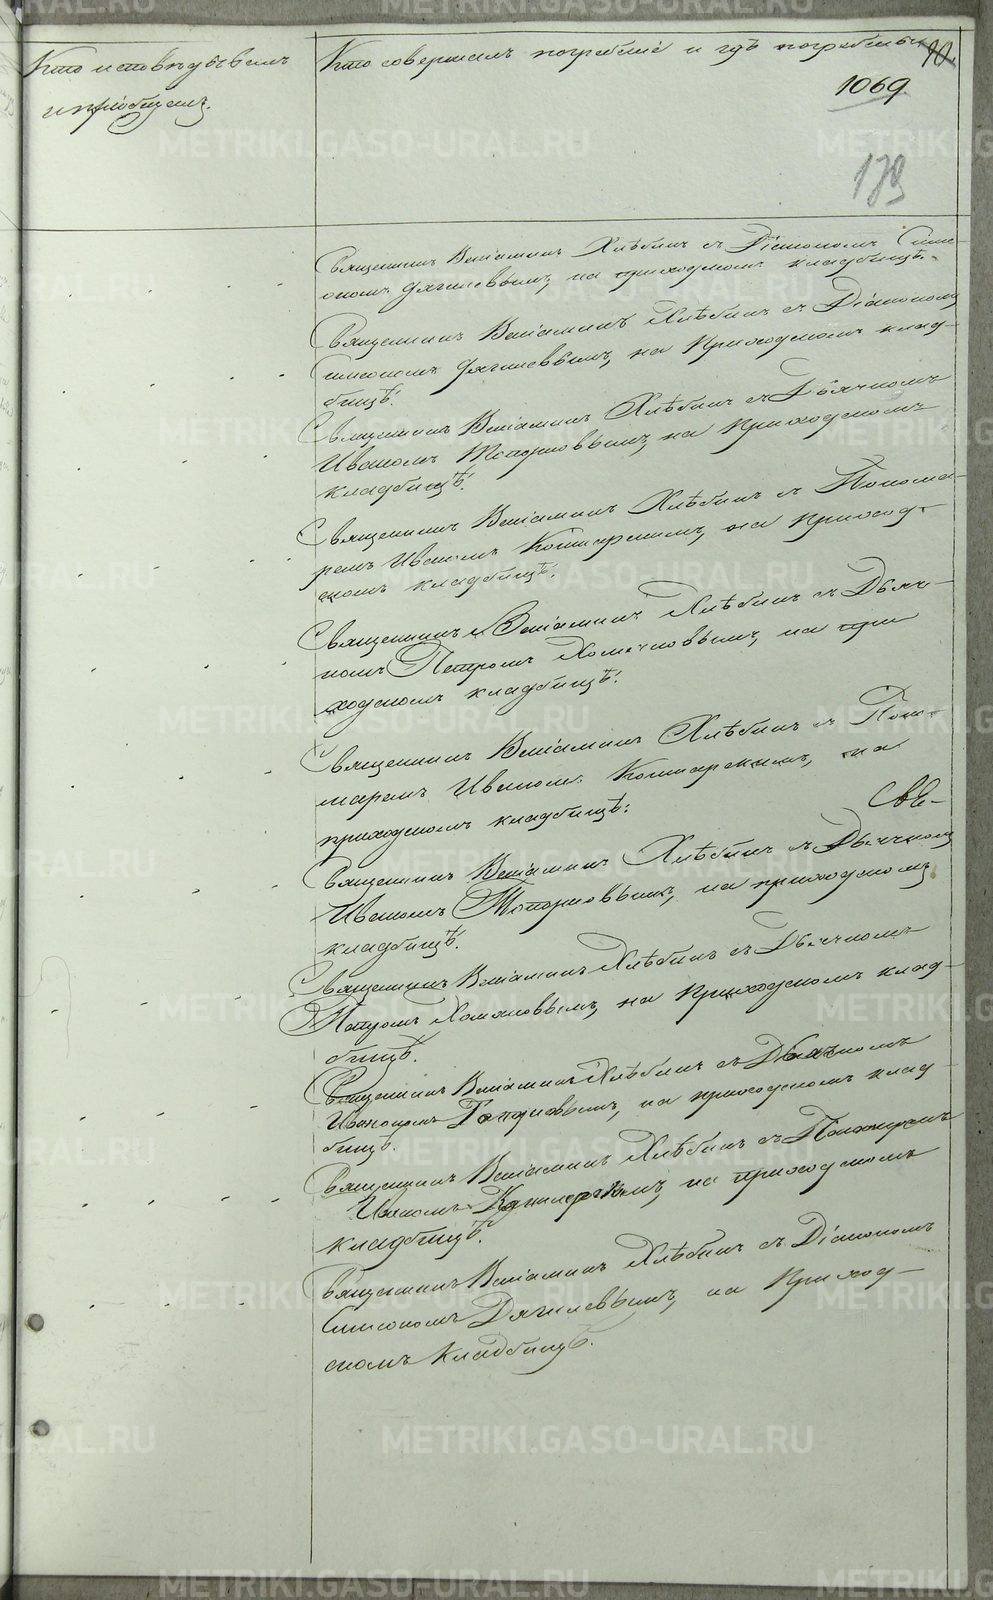 Кто исповѣдывалъ
и пріобщалъ.
Кто совершалъ погребеніе и гдѣ погребены
90.
1069
179
Священникъ Веніаминъ Хлѣбинъ съ Діакономъ Симе-
ономъ Дягилевымъ, на приходскомъ кладбищѣ.
Священникъ Веніаминъ Хлѣбинъ съ Діакономъ
Симеономъ Дягилевымъ, на Приходскомъ клад-
бищѣ.
Священникъ Веніаминъ Хлѣбинъ съ Дьячкомъ
Иваномъ Топорковымъ, на Приходскомъ
кладбищѣ.
Священникъ Веніаминъ Хлѣбинъ съ Понома-
ремъ Иваномъ на Приход-
скомъ кладбищѣ.
Священникъ Веніаминъ Хлѣбинъ съ Дьяч-
комъ Петромъ на при
ходскомъ кладбищѣ.
Священникъ Веніаминъ Хлѣбинъ съ Поно-
маремъ Иваномъ на
приходскомъ кладбищѣ.
Свѣ-
Священникъ Веніаминъ Хлѣбинъ съ Дьячкомъ
Иваномъ Топорковымъ, на приходскомъ
кладбищѣ.
Священникъ Веніаминъ Хлѣбинъ съ Дьячкомъ
Петромъ на Приходскомъ клад-
бищѣ.
Священникъ Веніаминъ Хлѣбинъ съ Дьячкомъ
Иваномъ Топорковымъ, на приходскомъ клад
бищѣ.
Священникъ Веніаминъ Хлѣбинъ съ Пономаремъ
Иваномъ на приходскомъ
кладбищѣ.
Священникъ Веніаминъ Хлѣбинъ съ Діакономъ
Симеономъ Дягилевымъ, на Приход-
скомъ кладбищѣ.